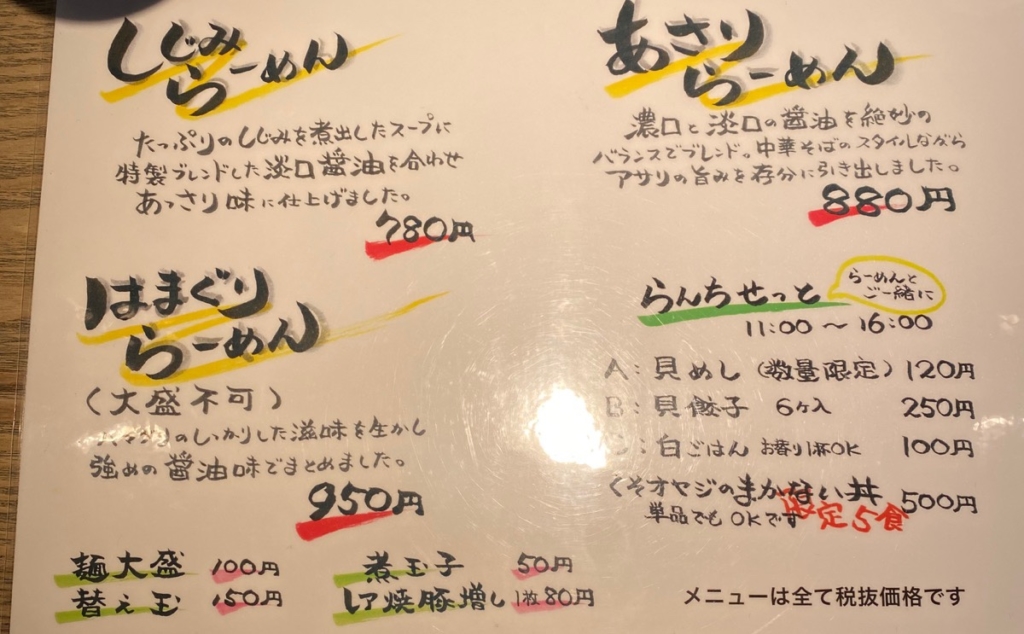 しじみ
らーめん
たっぷりのしじみを煮出したスープに
特製ブレンドした淡口醤油を合わせ
あっさり味に仕上げました。
780円
あさり
らーめん
濃口と淡口の醤油を絶妙の
バランスでブレンド。中華そばのスタイルしながら
アサリの旨みを存分に引き出しました。
880円
はまぐり
らーめん
(大盛不可)
はまぐりのしっかりした滋味を生かし
強めの醤油味でまとめました。
950円
らんちせっと
らーめんと
ご一緒に
11:00～16:00
A:貝めし(数量限定) 120円
B:貝餃子 6ヶ入 250円
C:白ごはん お替り1杯OK 100円
くそオヤジのまかない丼 500円
単品でもOKです 限定5食
麺大盛 100円
替え玉 150円
煮玉子 50円
レア焼豚増し 1枚80円
メニューは全て税抜価格です